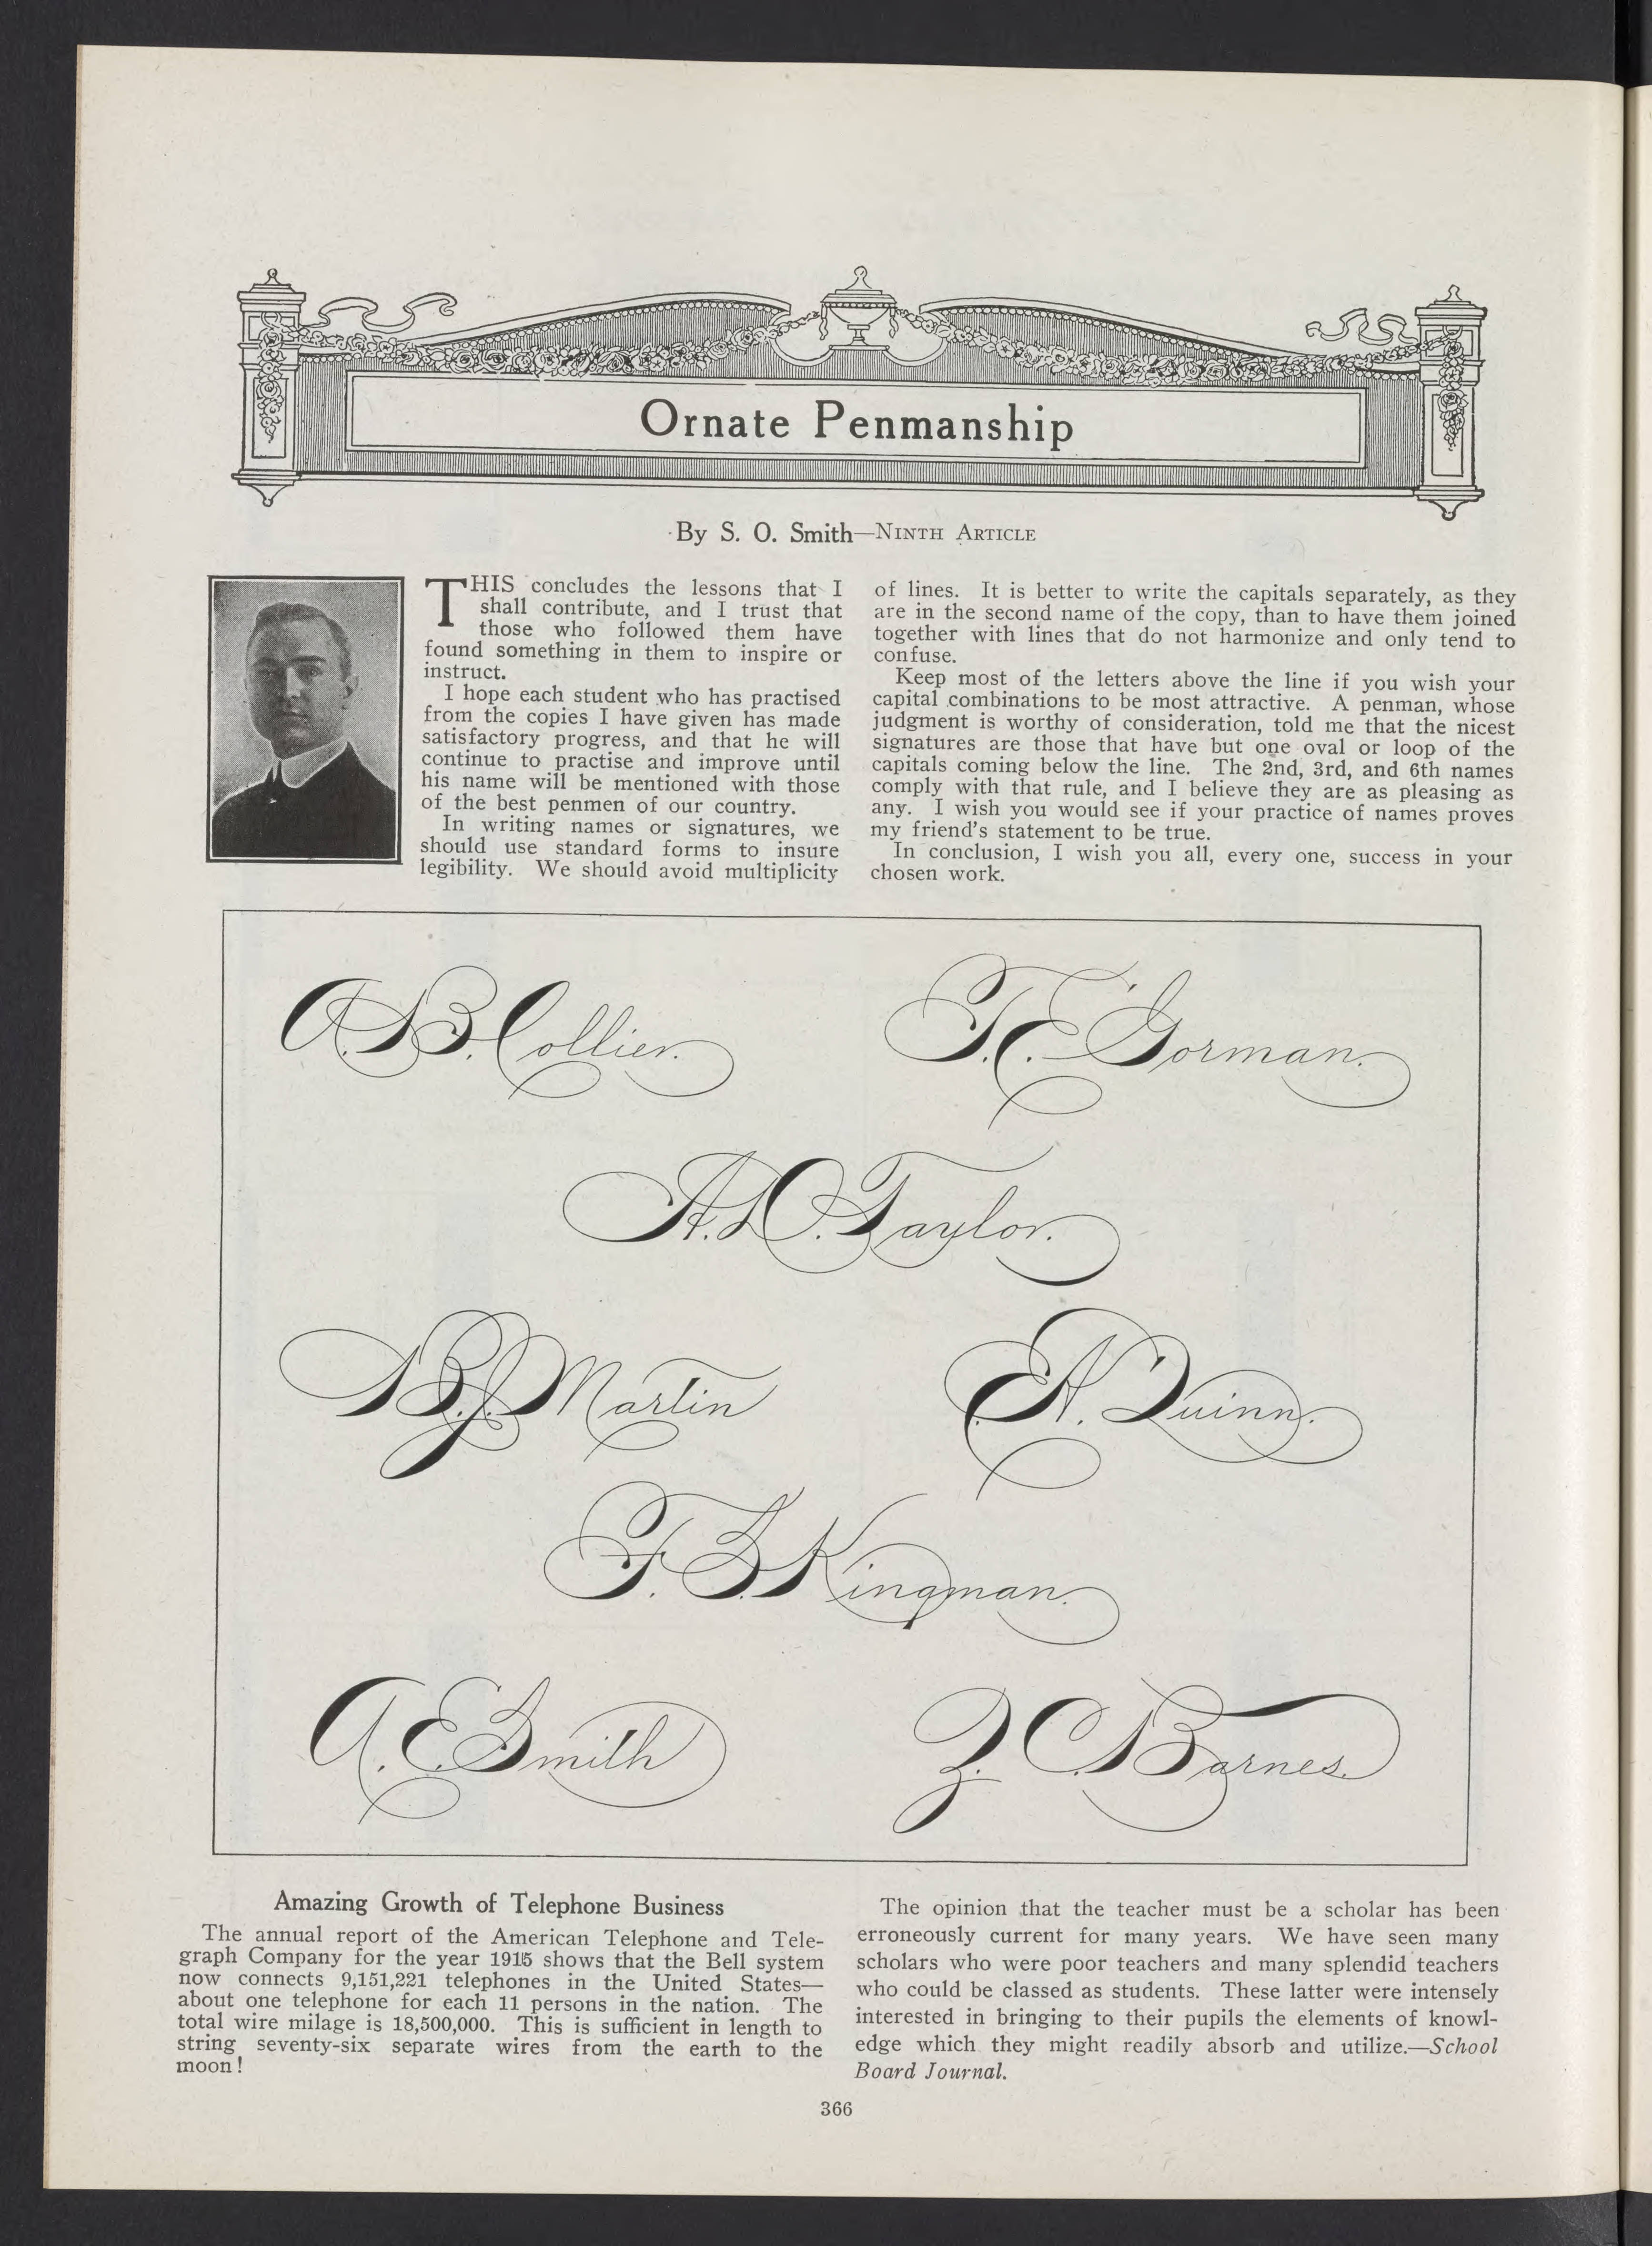 Ornate Penmanship
By S. O. Smith—NINTH ARTICLE
THIS concludes the lessons that I
shall contribute, and I trust that
those who followed them have
found something in them to inspire or
instruct.
I hope each student who has practised
from the copies I have given has made
satisfactory progress, and that he will
continue to practise and improve until
his name will be mentioned with those
of the best penmen of our country.
In writing names or signatures, we
should use standard forms to insure
legibility. We should avoid multiplicity
of lines. It is better to write the capitals separately, as they
are in the second name of the copy, than to have them joined
together with lines that do not harmonize and only tend to
confuse.
Keep most of the letters above the line if you wish your
capital combinations to be most attractive. A penman, whose
judgment is worthy of consideration, told me that the nicest
signatures are those that have but one oval or loop of the
capitals coming below the line. The 2nd, 3rd, and 6th names
comply with that rule, and I believe they are as pleasing as
any. I wish you would see if your practice of names proves
my friend's statement to be true.
In conclusion, I wish you all, every one, success in your
chosen work.
A. B. Collier.
T. E. Gorman.
A. O. Taylor.
B. J. Martin
E. N. Quinn.
F. S. Kingman.
A. E. Smith
Z. C. Barnes.
Amazing Growth of Telephone Business
The annual report of the American Telephone and Tele-
graph Company for the year 1915 shows that the Bell system
now connects 9,151,221 telephones in the United States—
about one telephone for each 11 persons in the nation. The
total wire milage is 18,500,000. This is sufficient in length to
string seventy-six separate wires from the earth to the
moon!
The opinion that the teacher must be a scholar has been
erroneously current for many years. We have seen many
scholars who were poor teachers and many splendid teachers
who could be classed as students. These latter were intensely
interested in bringing to their pupils the elements of knowl-
edge which they might readily absorb and utilize.—School
Board Journal.
366